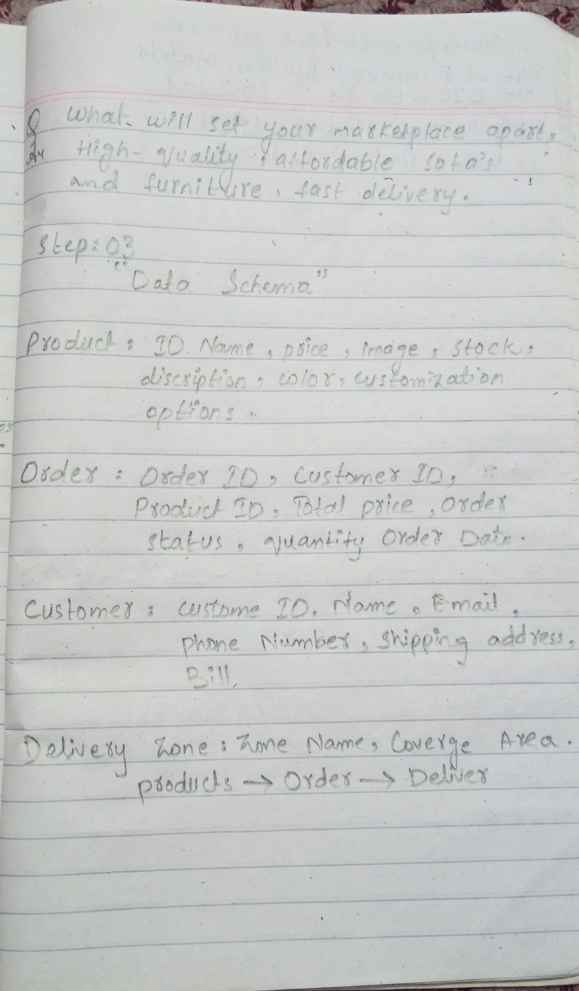 Q What will set your marketplace apart,
High-quality, affordable sofa's
and furniture, fast delivery.
Step: 03
"Data Schema"
Product: ID. Name, price, image, stock,
discription, color, customization
options.
Order: Order ID, Customer ID,
Product ID, Total price, order
status, quantity Order Date.
Customer: custome ID, Name, Email,
phone Number, Shipping address,
Bill,
Delivery Zone: Zone Name, Coverge Area.
products → Order → Deliver